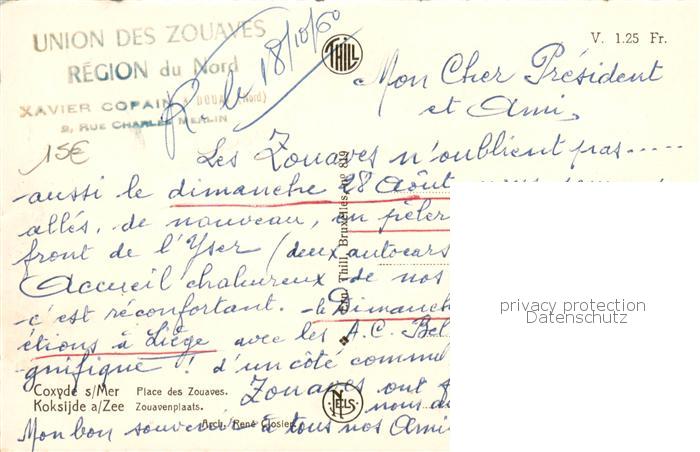 UNION DES ZOUAVES
RÉGION du Nord
XAVIER COPAIN à DOUAI (Nord)
9, RUE CHARLES MERLIN
R. le 18/10/60
15€
THILL
V. 1.25 Fr.
Mon Cher Président
et Ami,
Les Zouaves n'oublient pas.....
aussi le dimanche 28 Août
allés, de nouveau, en pèler
front de l'Yser (deux autocars
Accueil chaleureux de nos
c'est réconfortant. - le Dimanche
étions à Liège avec les A.C. Bel
gnifique ! d'un côté commu
Zouaves ont
nous
Mon bon souvenir à tous nos Ami
Coxyde s/Mer Place des Zouaves.
Koksijde a/Zee Zouavenplaats.
Arch. René Closier
Thill, Bruxelles, No 819
NELS
privacy protection
Datenschutz